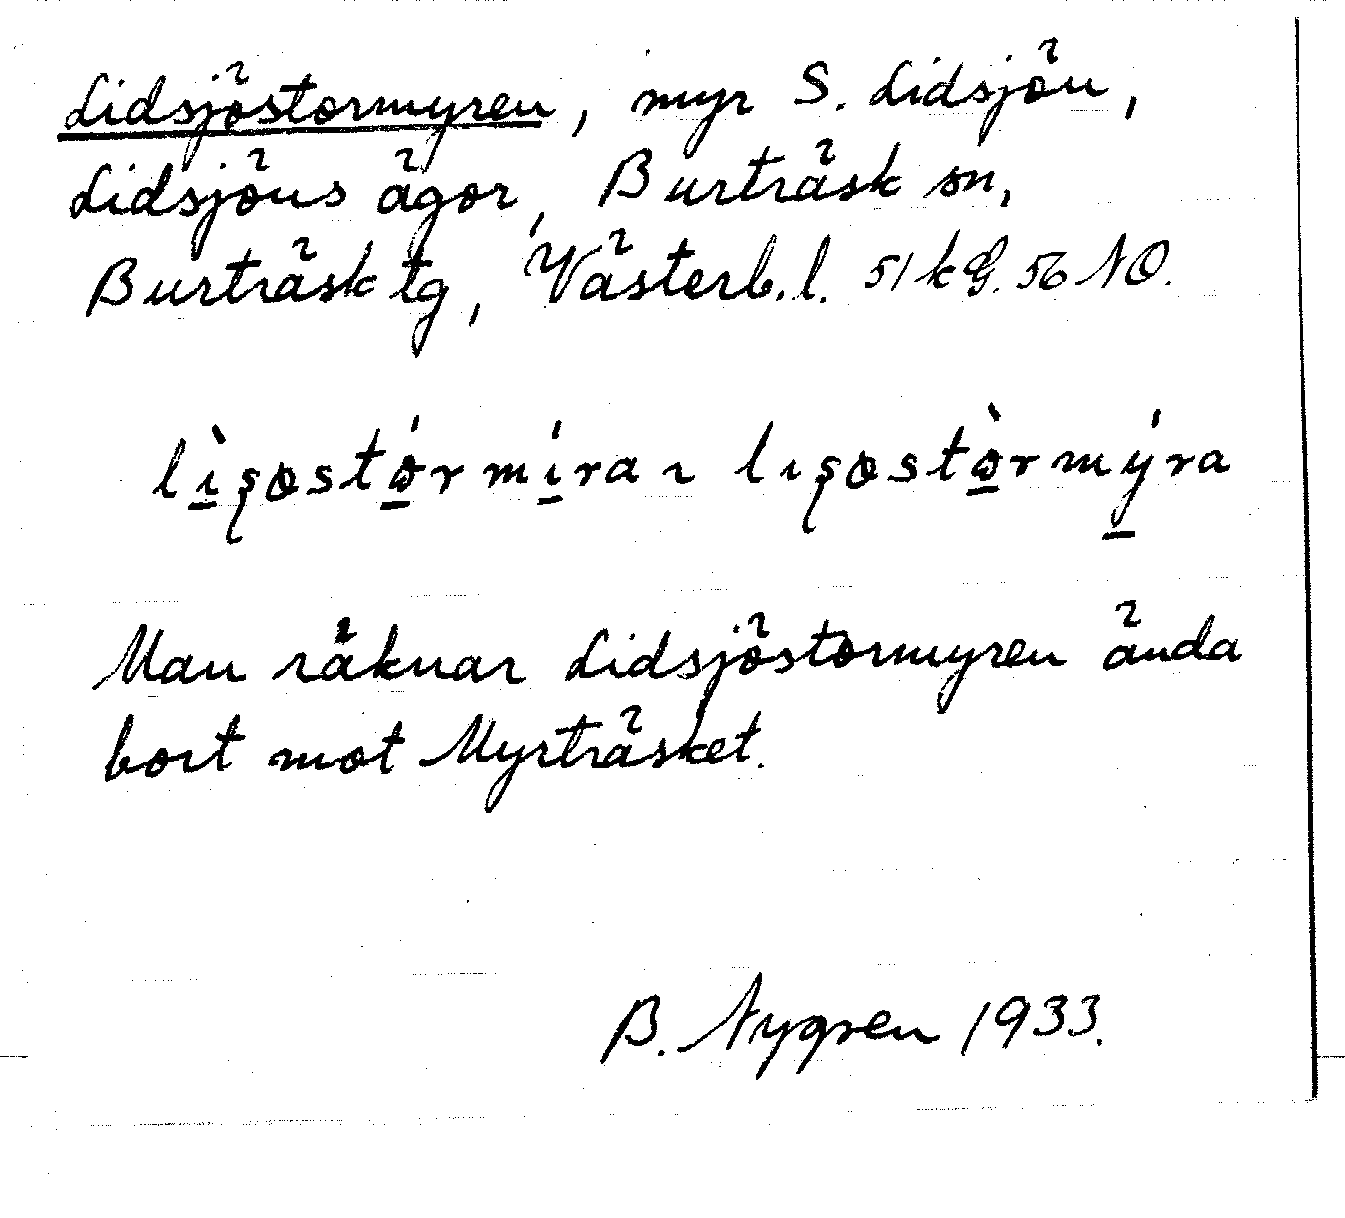 Lidsjöstormyren, myr S. Lidsjön,
Lidsjöns ägor, Burträsk sn,
Burträsk tg, Västerb. l. 51 k G. 56 NO.
Man räknar Lidsjöstormyren ända
bort mot Myrträsket.
B. Nygren 1933.